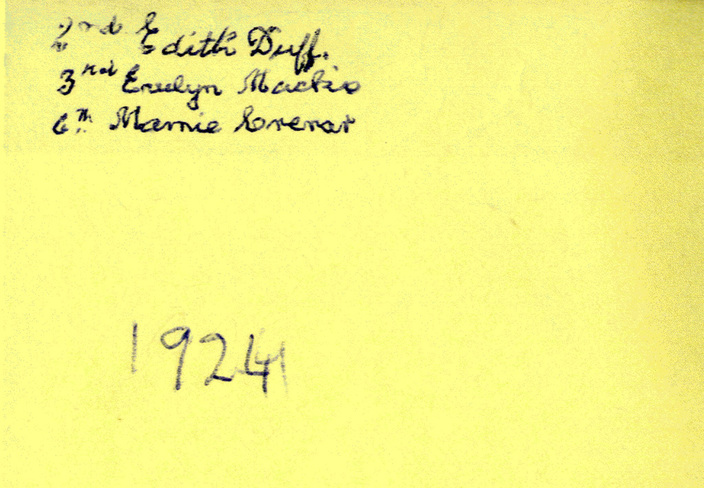 2nd Edith Duff.
3rd Evelyn Mackie
6th Mamie Crerar
1924